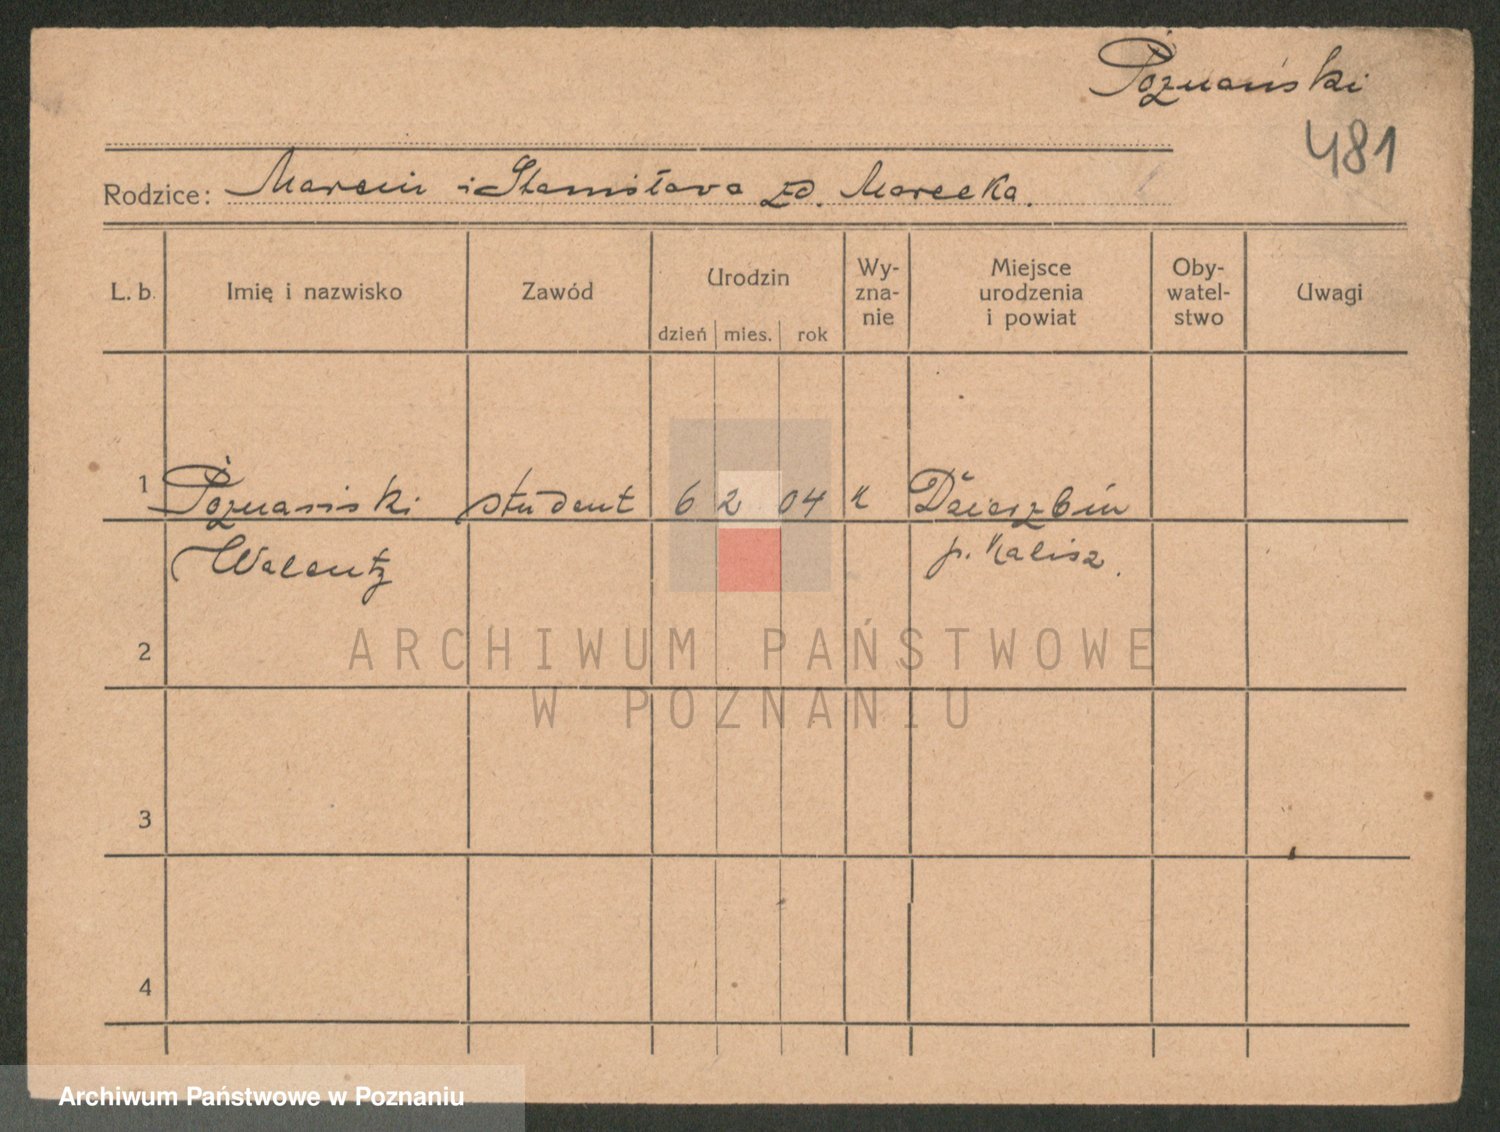 Poznański
481
Rodzice: Marcin i Stanisława zd. Marecka.
L. b. Imię i nazwisko Zawód Urodzin Wy-zna-nie Miejsce urodzenia i powiat Oby-watel-stwo Uwagi
dzień mies. rok
1 Poznański student 6 2 04 K Dzierzbin
Walenty p. Kalisz.
ARCHIWUM PAŃSTWOWE
2
W POZNANIU
3
4
Archiwum Państwowe w Poznaniu